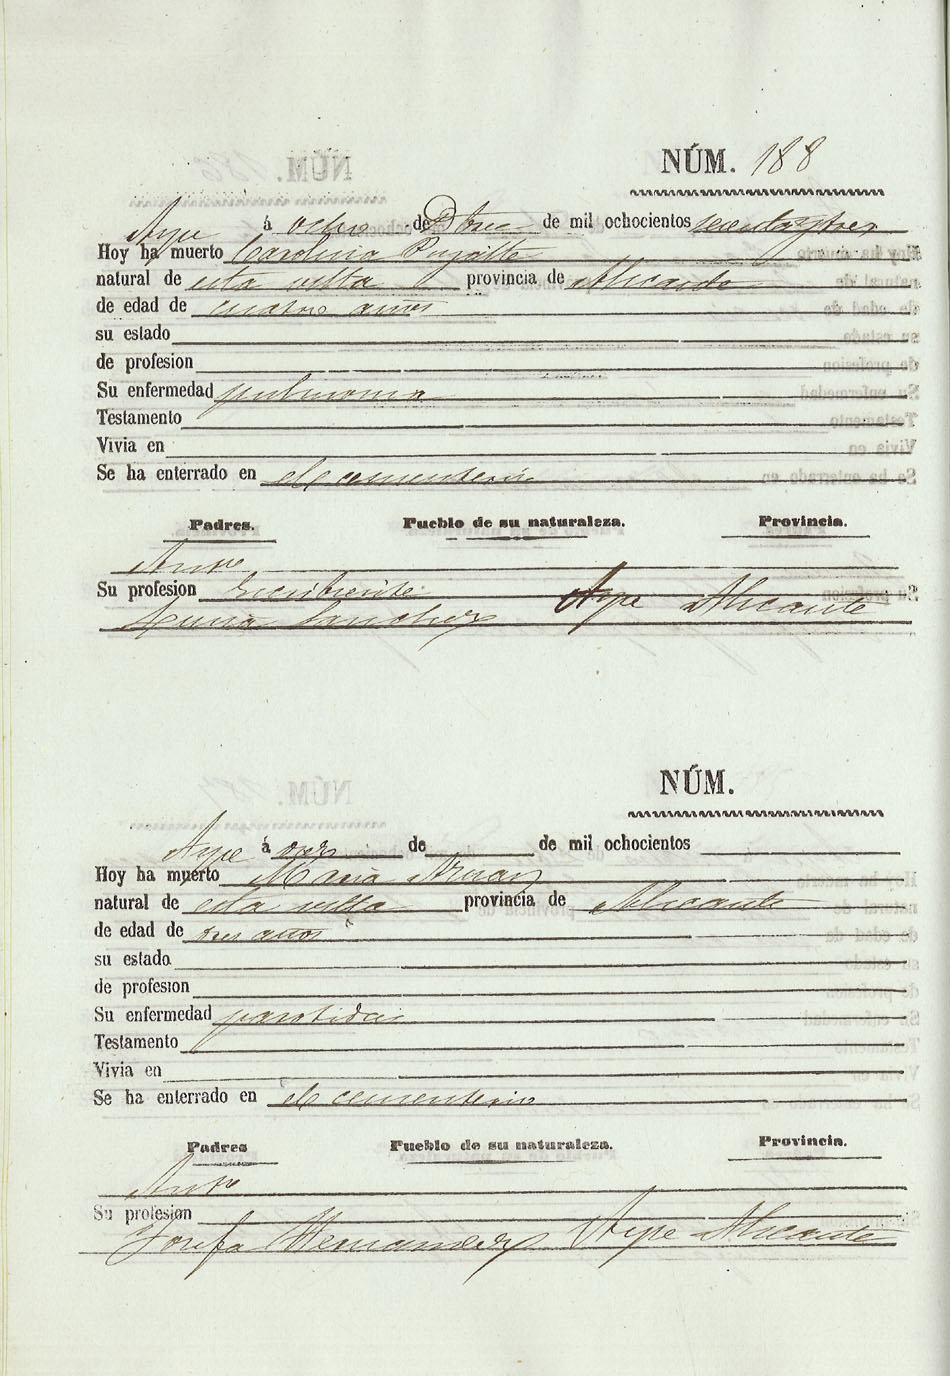 NÚM. 188
Aspe á ocho de Dbre de mil ochocientos sesenta y tres
Hoy ha muerto Carolina Pujalte
natural de esta villa provincia de Alicante
de edad de cuatro años
su estado
de profesion
Su enfermedad pulmonia
Testamento
Vivia en
Se ha enterrado en el cementerio
Padres. Pueblo de su naturaleza. Provincia.
Antº
Su profesion Escribiente
Sanchez Aspe Alicante
NÚM.
Aspe á de de mil ochocientos
Hoy ha muerto Maria
natural de esta villa provincia de Alicante
de edad de tres años
su estado
de profesion
Su enfermedad
Testamento
Vivia en
Se ha enterrado en el cementerio
Padres Pueblo de su naturaleza. Provincia.
Antº
Su profesion
Josefa Hernandez Aspe Alicante